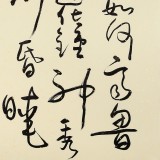 如何齊魯
化鍾神秀
昏曉